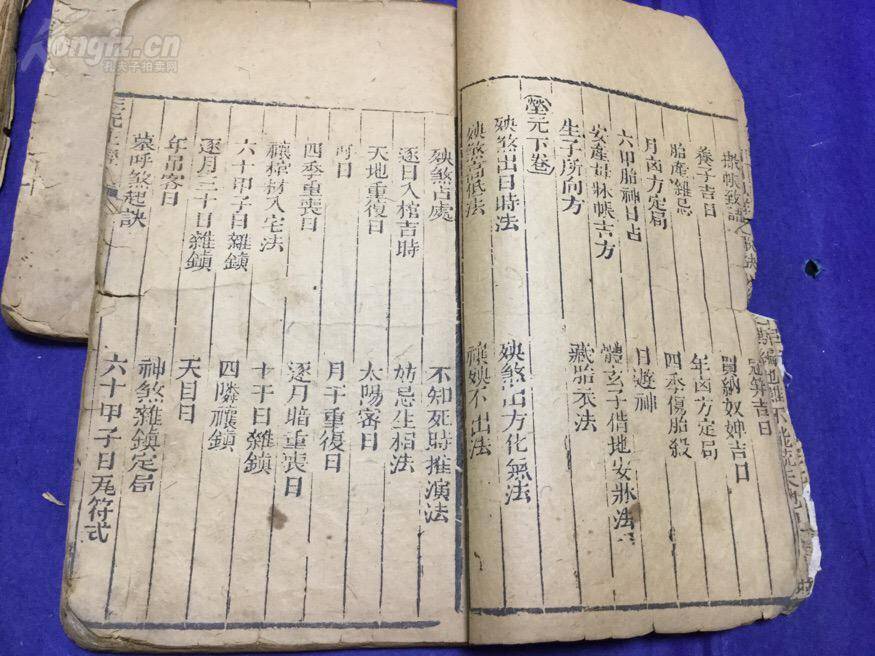 Kongfz.cn
孔夫子拍卖网
撒帳致語
冠笄吉日
養子吉日
買納奴婢吉日
胎產雜忌
年凶方定局
月凶方定局
四季傷胎殺
六甲胎神日占
日遊神
安產母牀帳吉方
體玄子借地安牀法
生子所向方
藏胎衣法
塋元下卷
殃煞出日時法
殃煞出方化無法
殃煞高低法
禳殃不出法
殃煞占處
不知死時推演法
逐日入棺吉時
妨忌生相法
天地重復日
太陽密日
河日
月干重復日
四季重喪日
逐月暗重喪日
禳棺材入宅法
十干日雜鎮
六十甲子日雜鎮
四隣禳鎮
逐月三十日雜鎮
天目日
年吊客日
神煞雜鎮定局
墓呼煞起訣
六十甲子日瓦符式